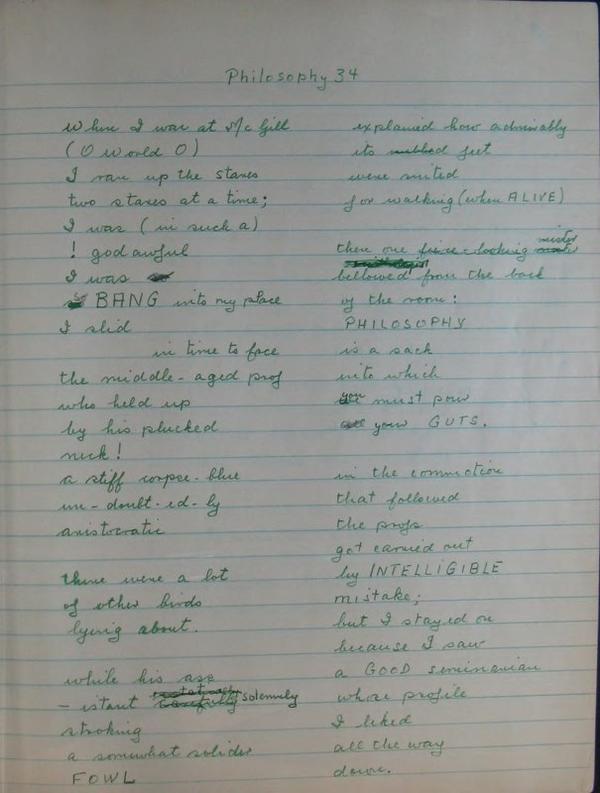 Philosophy 34
When I was at McGill
(O World O)
I ran up the staxes
two staxes at a time;
I was (in such a)
! godawful
I was
BANG into my place
I slid
in time to face
the middle-aged prof
who held up
by his plucked
neck!
a stiff corpse-blue
un-doubt-ed-ly
aristocratic
there were a lot
of other birds
lying about.
while his ass
-istant solemnly
stroking
a somewhat solider
FOWL
explained how admirably
its webbed feet
were suited
for walking (when ALIVE)
then one fierce-looking mister
bellowed from the back
of the room:
PHILOSOPHY
is a sack
into which
you must pour
your GUTS.
in the commotion
that followed
the profs
got carried out
by INTELLIGIBLE
mistake;
but I stayed on
because I saw
a GOOD seminarian
whose profile
I liked
all the way
down.